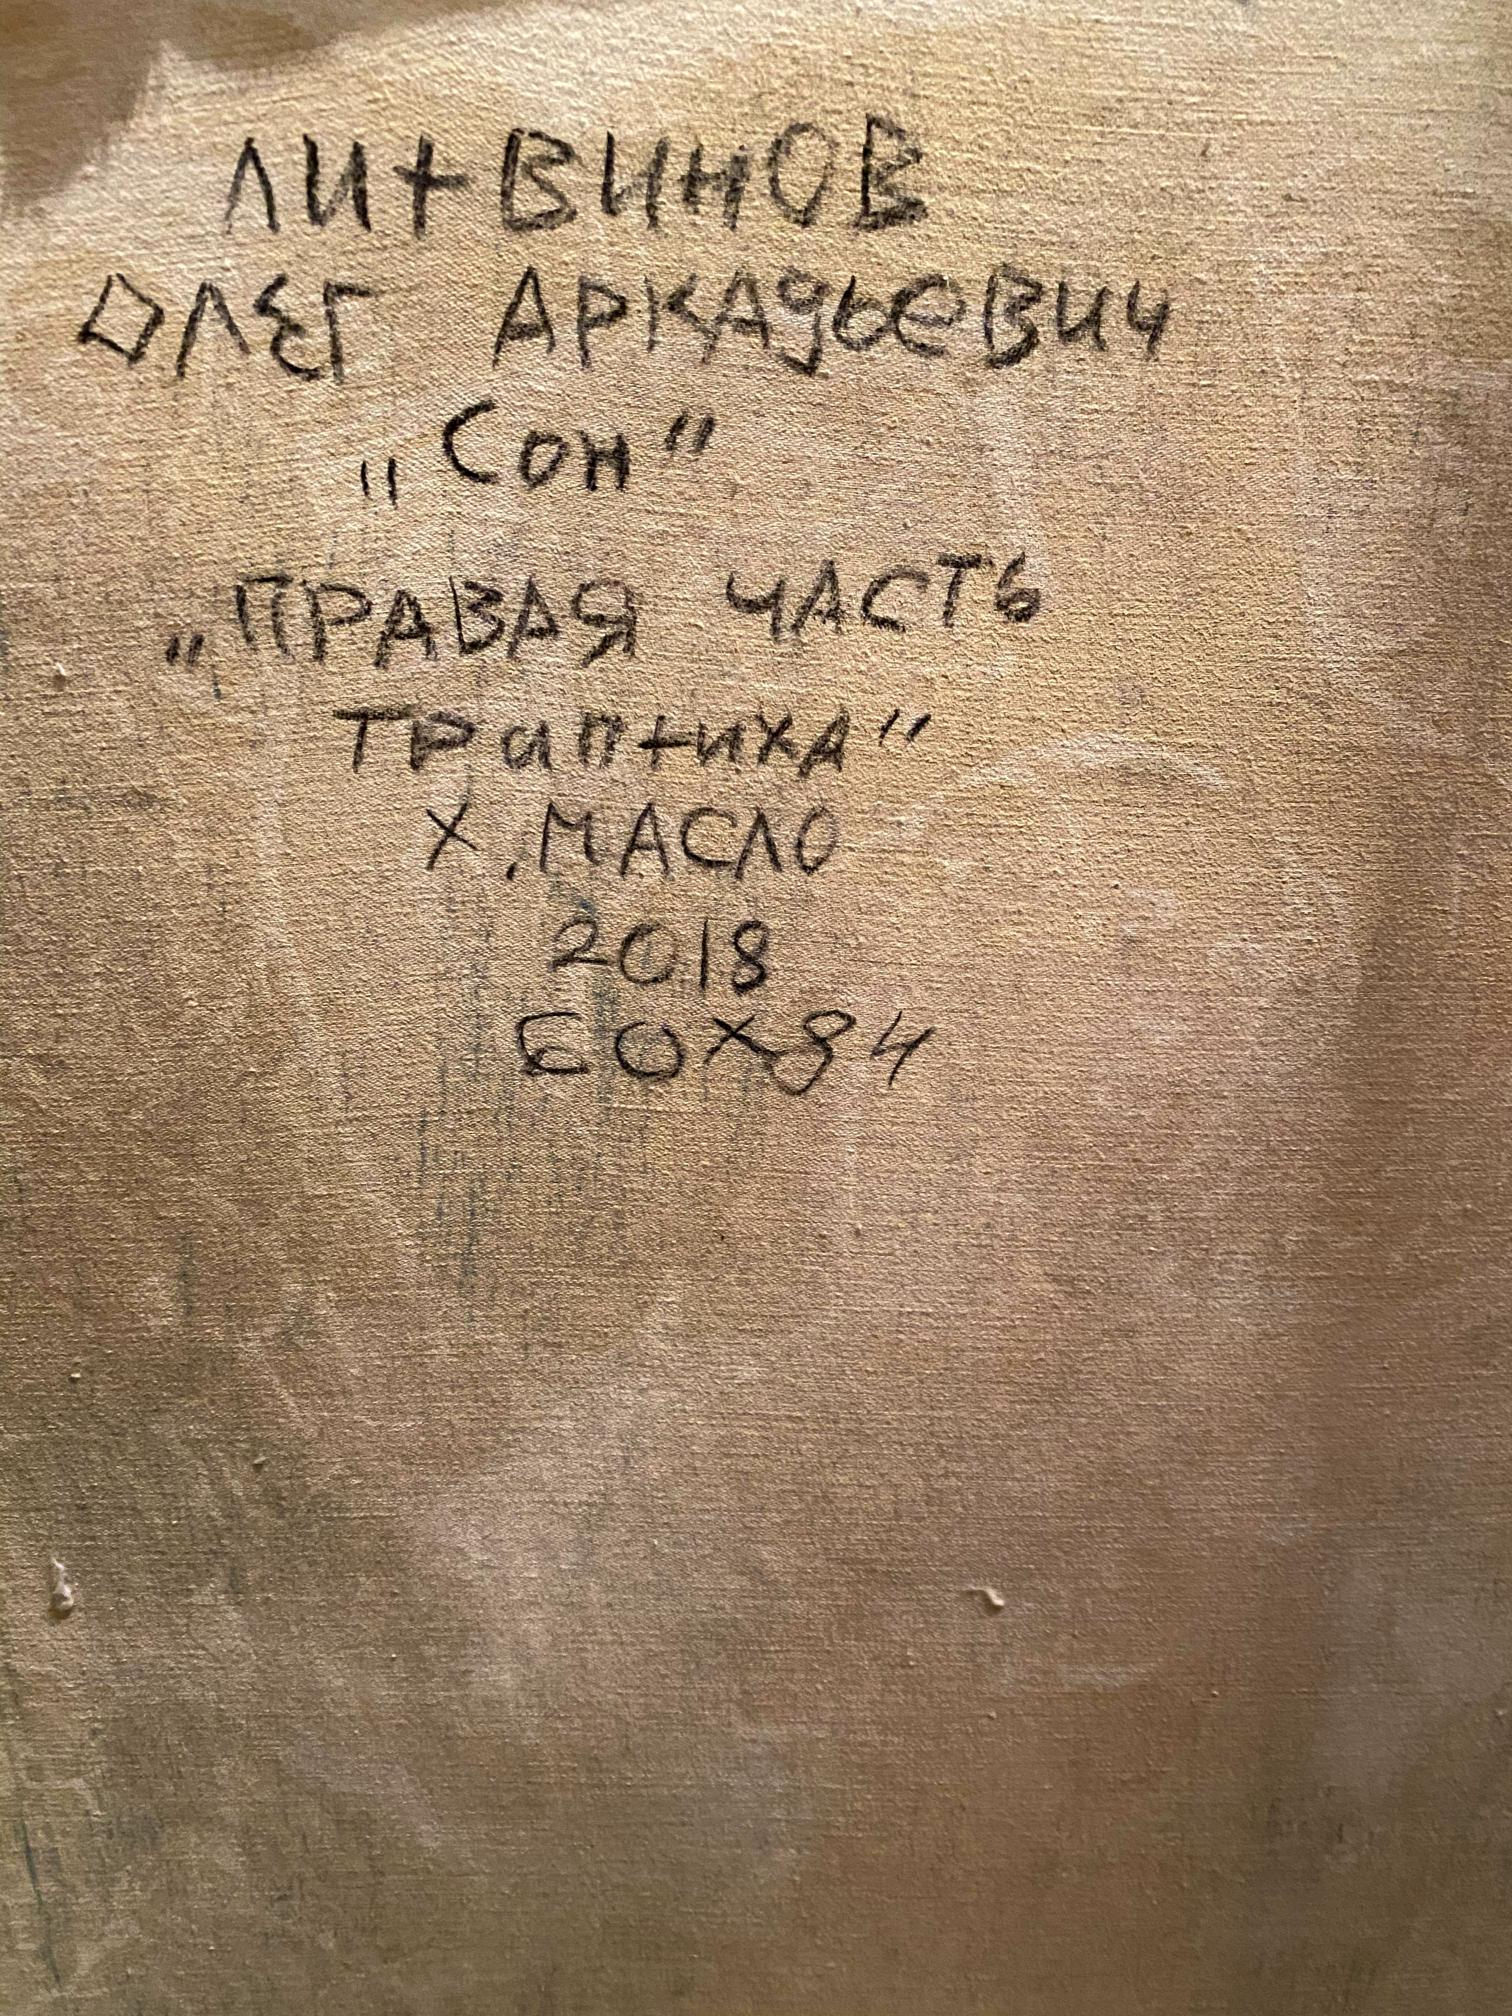 ЛИТВИНОВ
ОЛЕГ АРКАДЬЕВИЧ
„Сон"
„ПРАВАЯ ЧАСТЬ
ТРИПТИХА"
Х.МАСЛО
2018
60х84